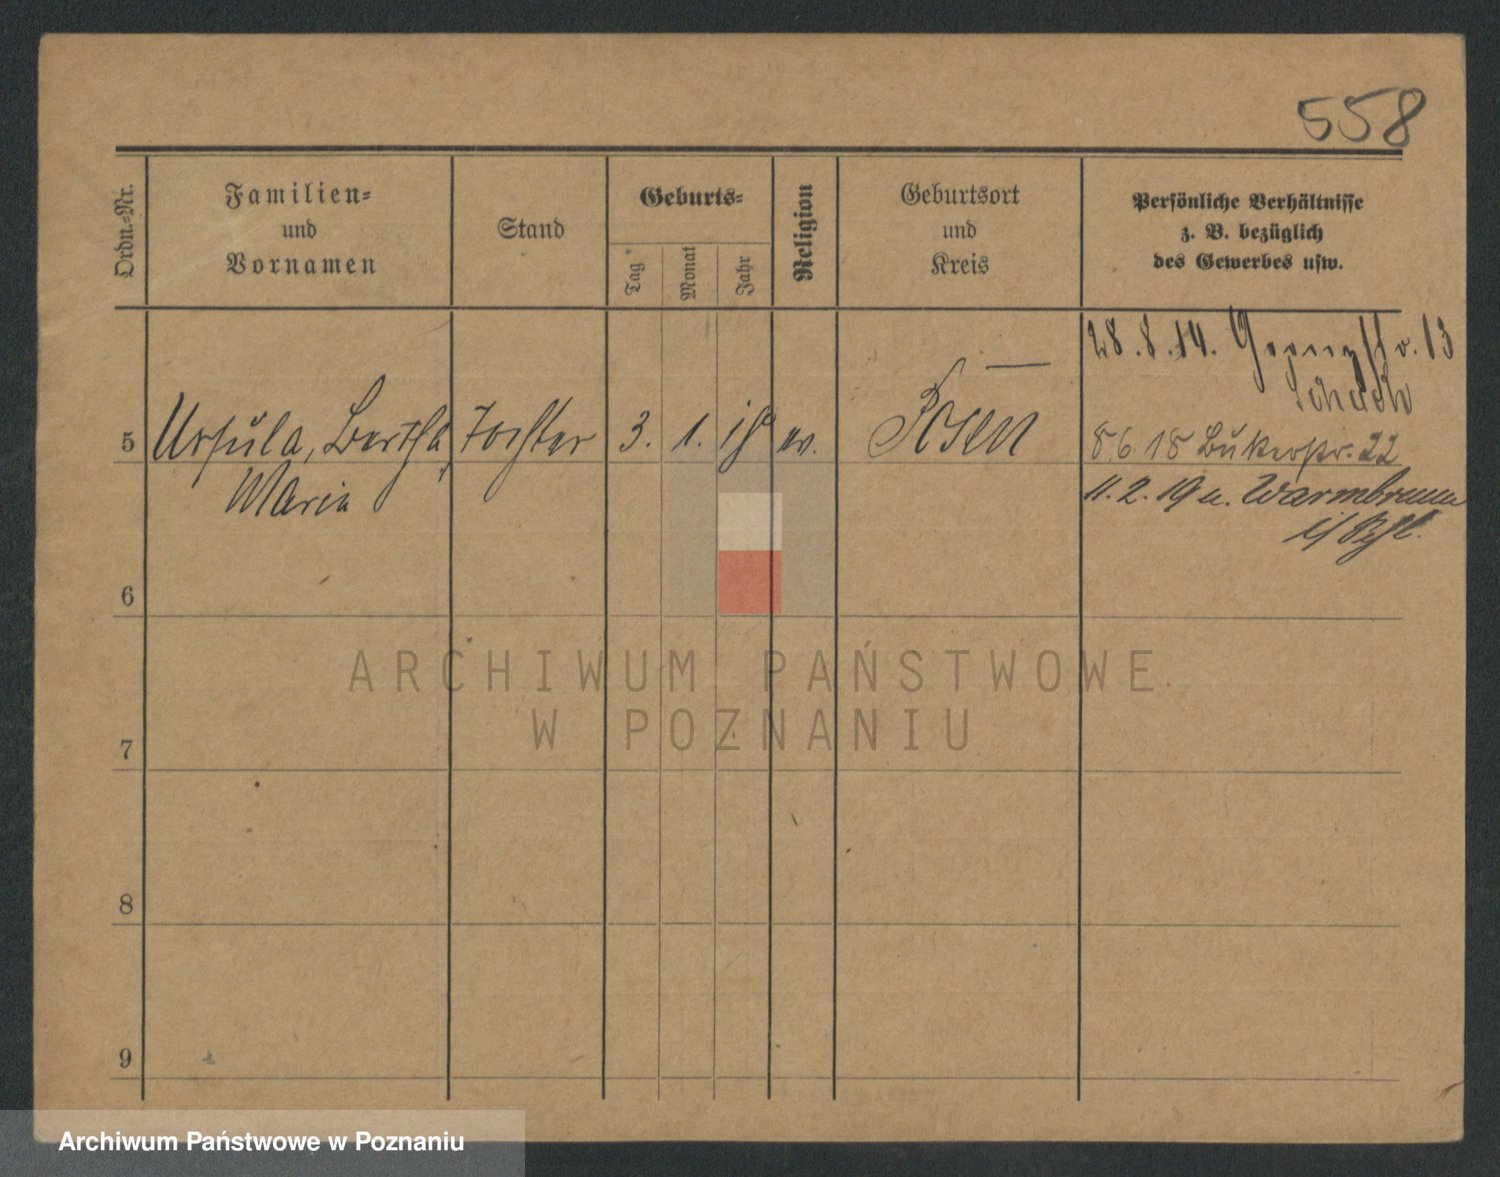 558
Ordn.-Nr.
Familien-
und
Vornamen
Stand
Geburts-
Tag
Monat
Jahr
Religion
Geburtsort
und
Kreis
Persönliche Verhältnisse
z. B. bezüglich
des Gewerbes usw.
28.8.14. 13
5 Ursula, Bertha, Tochter 3. 1. 18 ev. Posen
8 6 18 Bukerstr. 22
Maria
11.2.19 n. Warmbrunn
6
7
8
9
ARCHIWUM PAŃSTWOWE
W POZNANIU
Archiwum Państwowe w Poznaniu